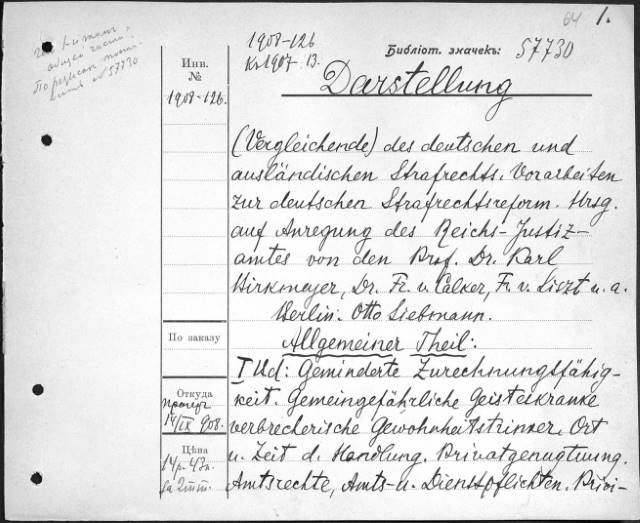 64 1.
1908-126
Библіот. значекъ: 57730
57730
Инв.
№
1908-126.
Kr 1907. B.
Darstellung
(Vergleichende) des deutschen und
ausländischen Strafrechts. Vorarbeiten
zur deutschen Strafrechtsreform. Hrsg.
auf Anregung des Reichs-Justiz-
amtes von den Prof. Dr. Karl
Birkmeyer, Dr. Fr. v. Calker, F. v. Liszt u. a.
Berlin. Otto Liebmann.
По заказу
Allgemeiner Theil:
I Bd: Geminderte Zurechnungsfähig-
Откуда
keit. Gemeingefährliche Geisteskranke
14/IX 908.
verbrecherische Gewohnheitstrinker. Ort
Цѣна
u. Zeit d. Handlung. Privatgenugtuung.
14 р. 43 к.
Amtsrechte, Amts- u. Dienstpflichten. Privi-